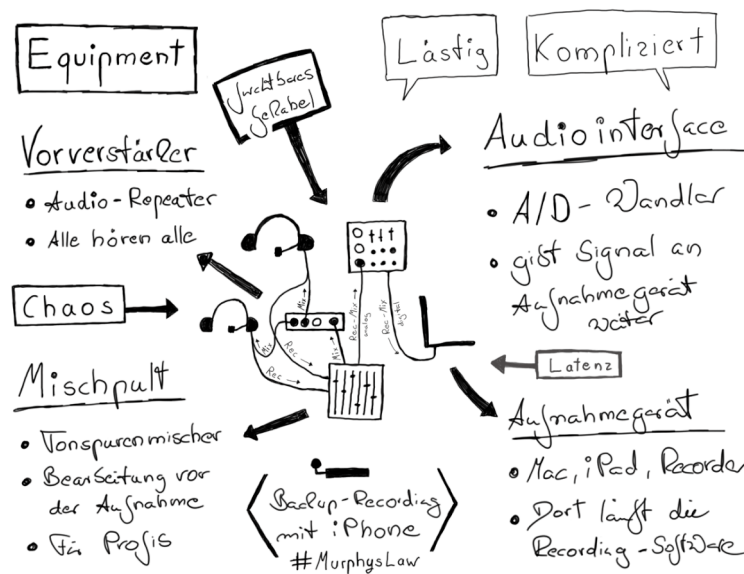 Equipment
Furchtbares
Gekabel
Lästig
Kompliziert
Vorverstärker
• Audio-Repeater
• Alle hören alle
Chaos
Mischpult
• Tonspurenmischer
• Bearbeitung vor
der Aufnahme
• Für Profis
Audiointerface
• A/D-Wandler
• gibt Signal an
Aufnahmegerät
weiter
Latenz
Aufnahmegerät
• Mac, iPad, Recorder
• Dort läuft die
Recording-Software
Mix →
Mix →
Rec →
Rec →
Mix →
Rec-Mix →
analog
Rec-Mix →
digital
Backup-Recording
mit iPhone
#MurphysLaw